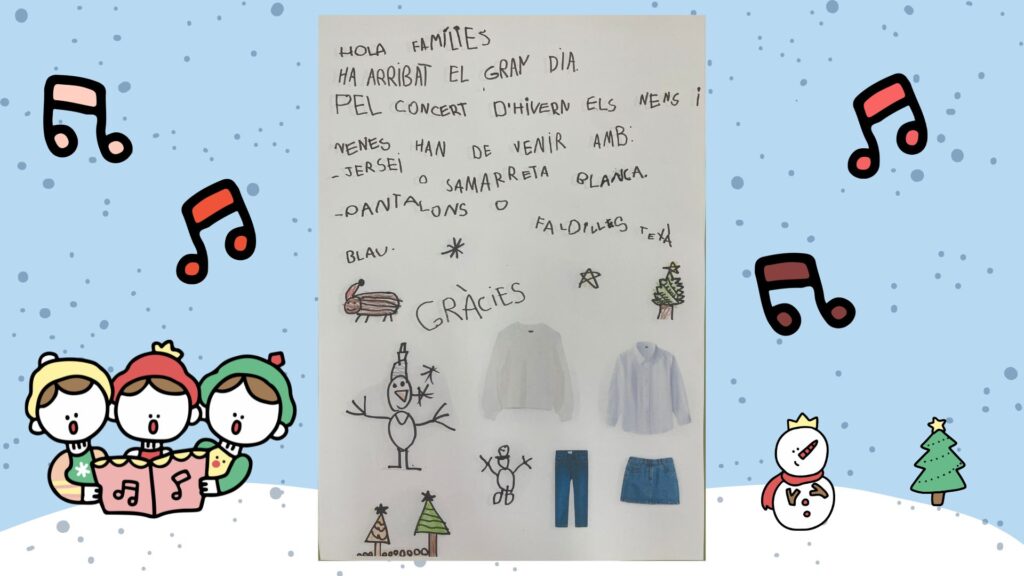 HOLA FAMÍLIES
HA ARRIBAT EL GRAN DIA.
PEL CONCERT D'HIVERN ELS NENS I
NENES HAN DE VENIR AMB:
-JERSEI O SAMARRETA BLANCA.
-PANTALONS O FALDILLES TEXÀ
BLAU.
GRÀCIES